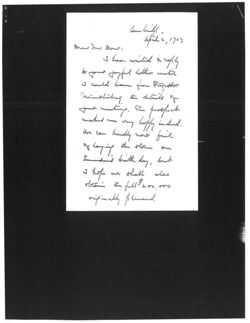 April 2, 1903
I have waited to reply
to your joyful letter until
I could learn from
the details of
your meeting. The prospect
makes me very happy indeed.
We can hardly now fail
of laying the stone on
birthday, but
I hope we shall also
obtain the full
originally planned